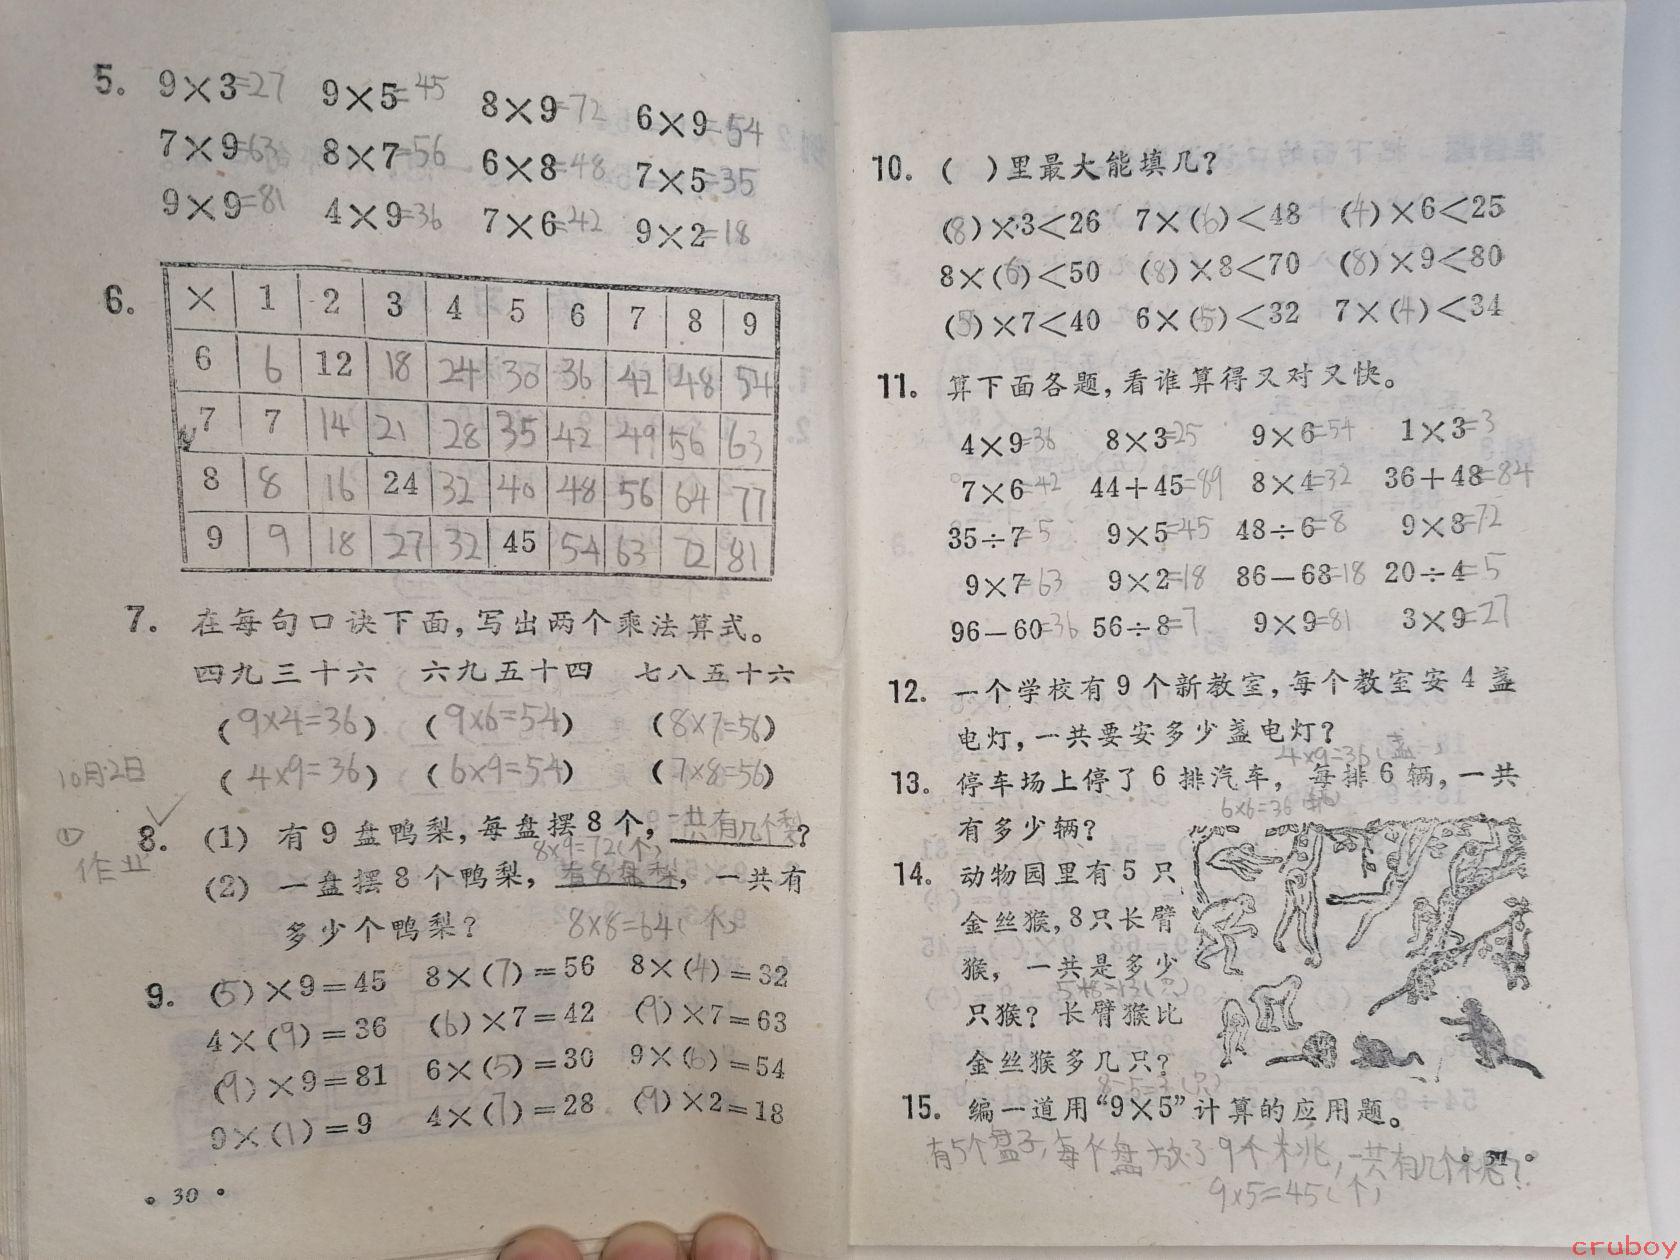 5. 9×3=27 9×5=45 8×9=72 6×9=54
7×9=63 8×7=56 6×8=48 7×5=35
9×9=81 4×9=36 7×6=42 9×2=18
6. × 1 2 3 4 5 6 7 8 9
6 6 12 18 24 30 36 42 48 54
7 7 14 21 28 35 42 49 56 63
8 8 16 24 32 40 48 56 64 77
9 9 18 27 32 45 54 63 72 81
7. 在每句口诀下面,写出两个乘法算式。
四九三十六 六九五十四 七八五十六
(9×4=36) (9×6=54) (8×7=56)
(4×9=36) (6×9=54) (7×8=56)
10月2日
① 作业
8. (1) 有9盘鸭梨,每盘摆8个,一共有几个梨?
8×9=72(个)
(2) 一盘摆8个鸭梨,有8盘梨,一共有
多少个鸭梨? 8×8=64(个)
9. (5)×9=45 8×(7)=56 8×(4)=32
4×(9)=36 (6)×7=42 (9)×7=63
(9)×9=81 6×(5)=30 9×(6)=54
9×(1)=9 4×(7)=28 (9)×2=18
• 30 •
10. ( )里最大能填几?
(8)×3<26 7×(6)<48 (4)×6<25
8×(6)<50 (8)×8<70 (8)×9<80
(5)×7<40 6×(5)<32 7×(4)<34
11. 算下面各题,看谁算得又对又快。
4×9=36 8×3=25 9×6=54 1×3=3
7×6=42 44+45=89 8×4=32 36+48=84
35÷7=5 9×5=45 48÷6=8 9×8=72
9×7=63 9×2=18 86－68=18 20÷4=5
96－60=36 56÷8=7 9×9=81 3×9=27
12. 一个学校有9个新教室,每个教室安4盏
电灯,一共要安多少盏电灯?
4×9=36(盏)
13. 停车场上停了6排汽车, 每排6辆,一共
有多少辆? 6×6=36
14. 动物园里有5只
金丝猴,8只长臂
猴, 一共是多少
5+8=13(只)
只猴? 长臂猴比
金丝猴多几只?
8-5=3(只)
15. 编一道用“9×5”计算的应用题。
有5个盘子,每个盘放了9个桃,一共有几个桃?
9×5=45(个)
• 31 •
cruboy